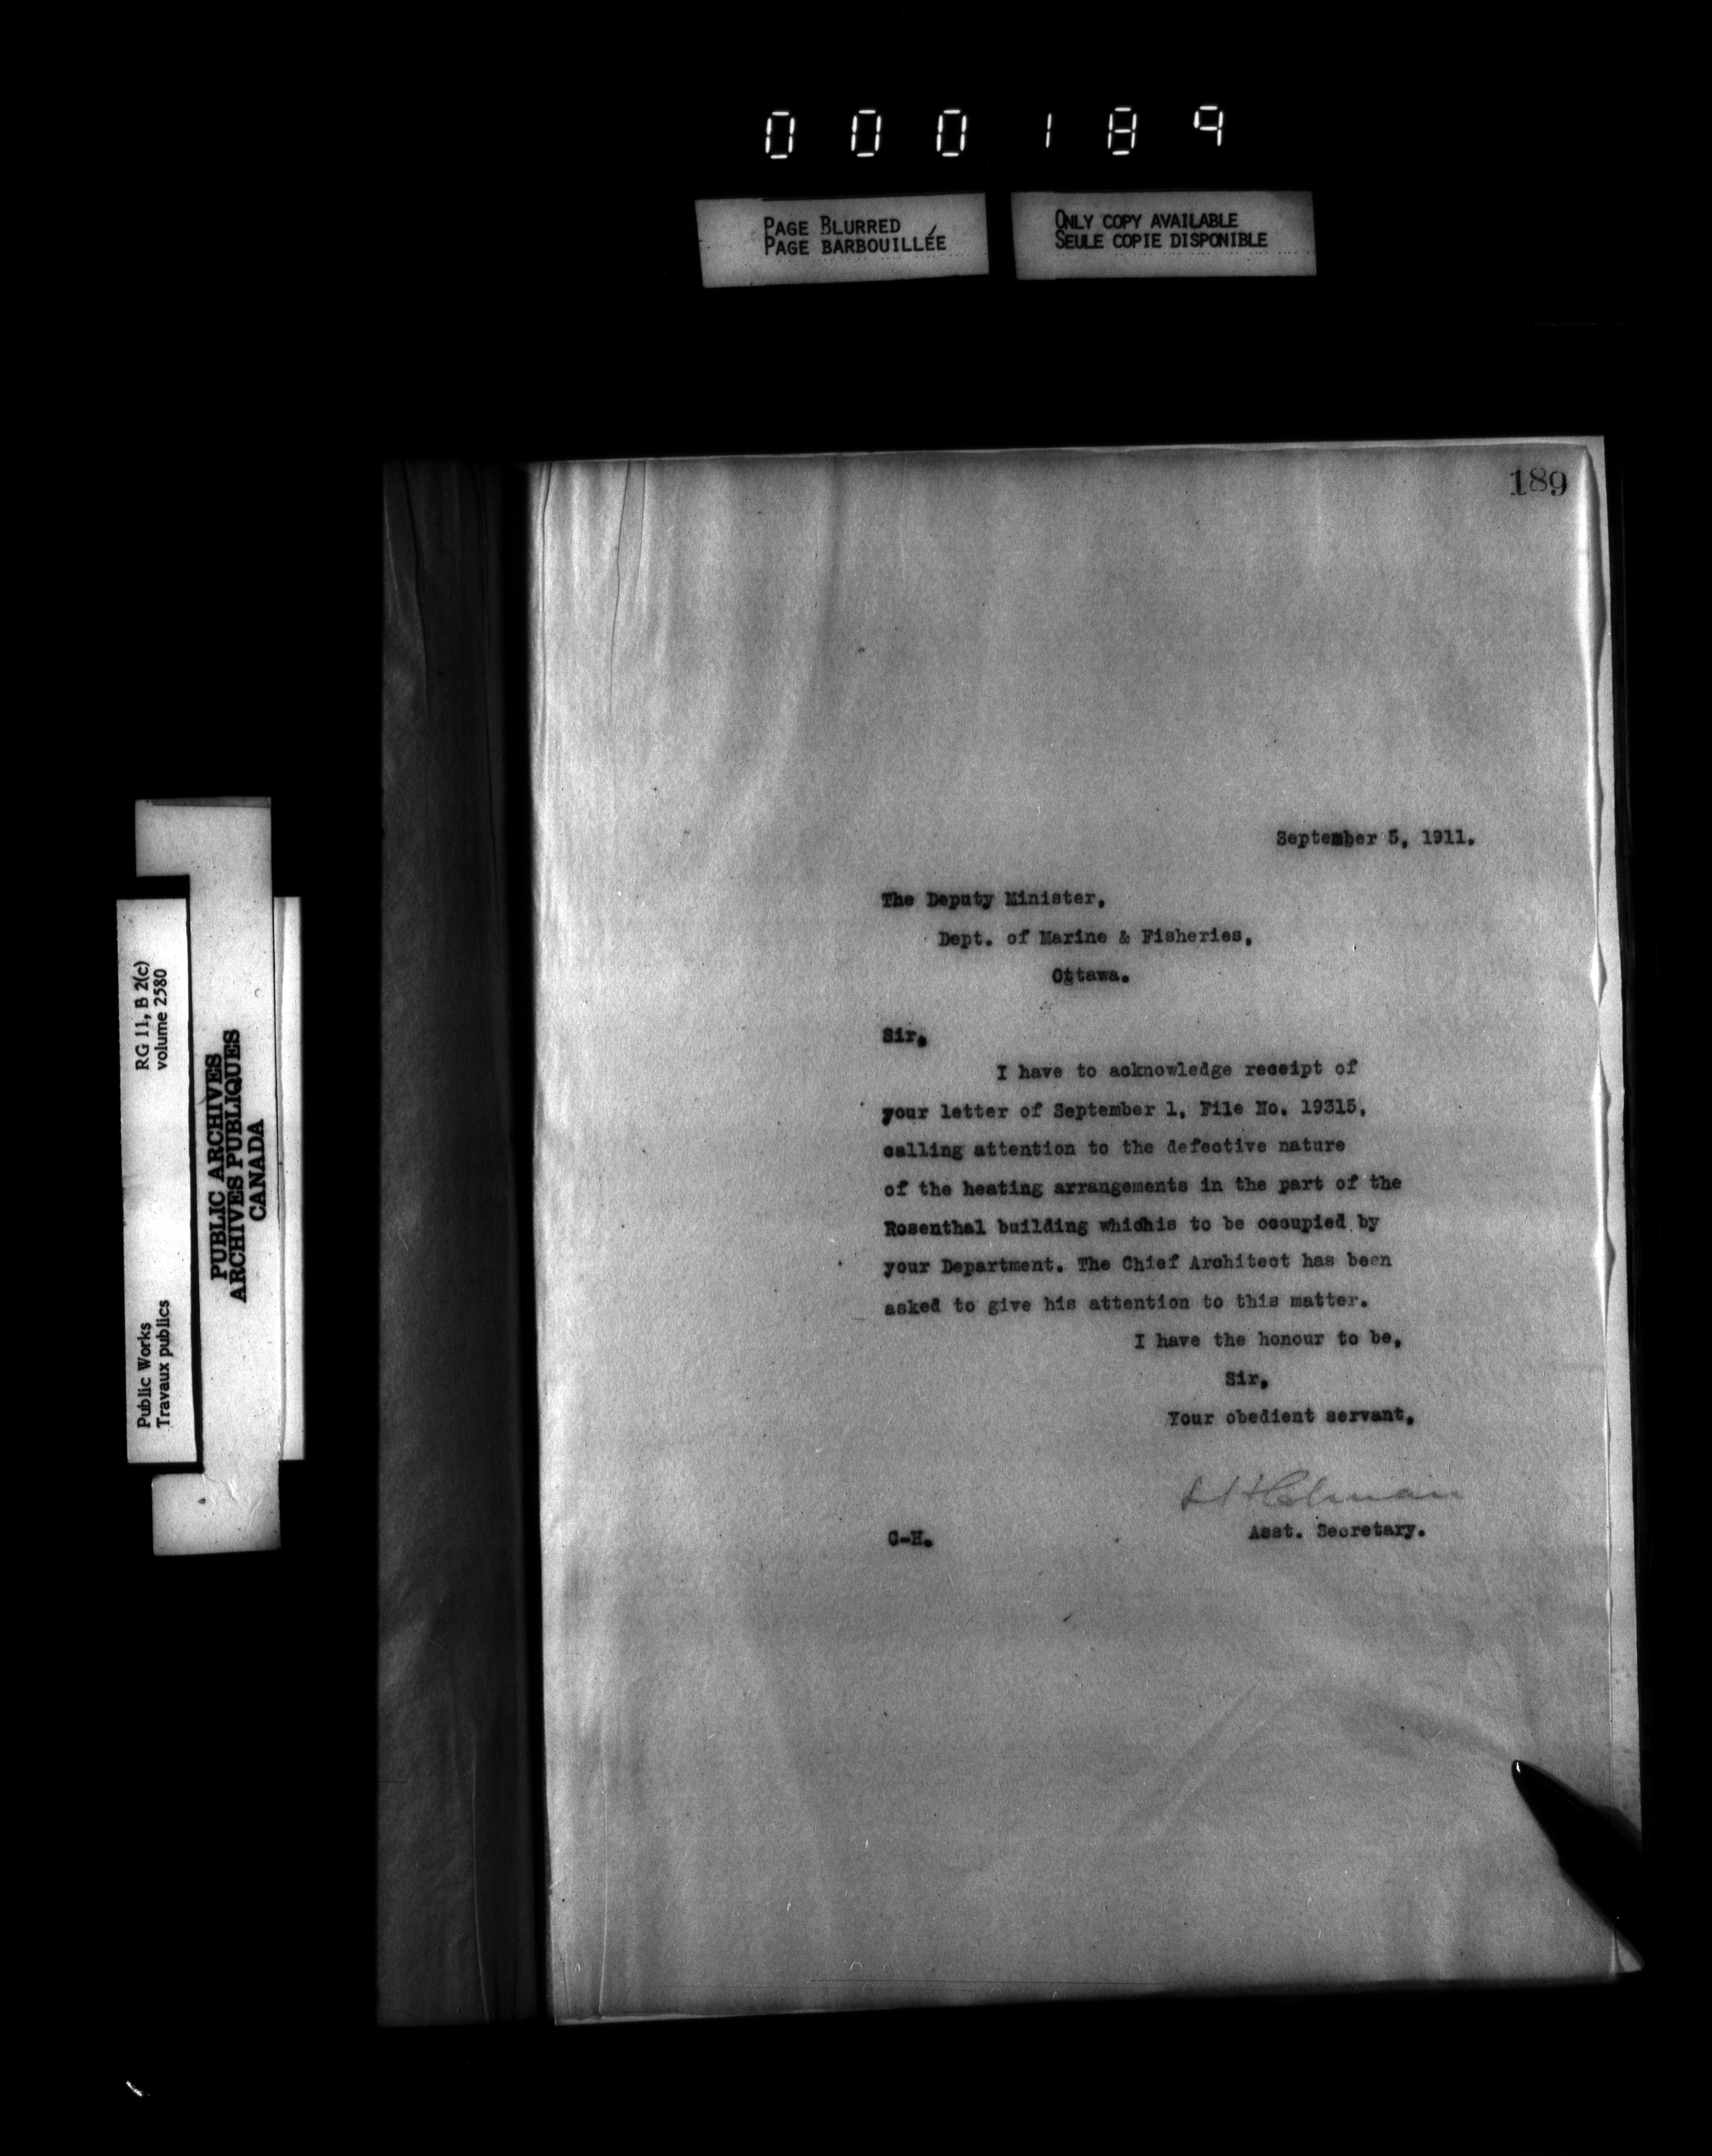 000189
PAGE BLURRED
PAGE BARBOUILLÉE
ONLY COPY AVAILABLE
SEULE COPIE DISPONIBLE
RG 11, B 2(c)
volume 2580
Public Works
Travaux publics
PUBLIC ARCHIVES
ARCHIVES PUBLIQUES
CANADA
189
September 5, 1911.
The Deputy Minister,
Dept. of Marine & Fisheries,
Ottawa.
Sir,
I have to acknowledge receipt of
your letter of September 1, File No. 19315,
calling attention to the defective nature
of the heating arrangements in the part of the
Rosenthal building whichis to be occupied by
your Department. The Chief Architect has been
asked to give his attention to this matter.
I have the honour to be,
Sir,
Your obedient servant,
Asst. Secretary.
C-H.